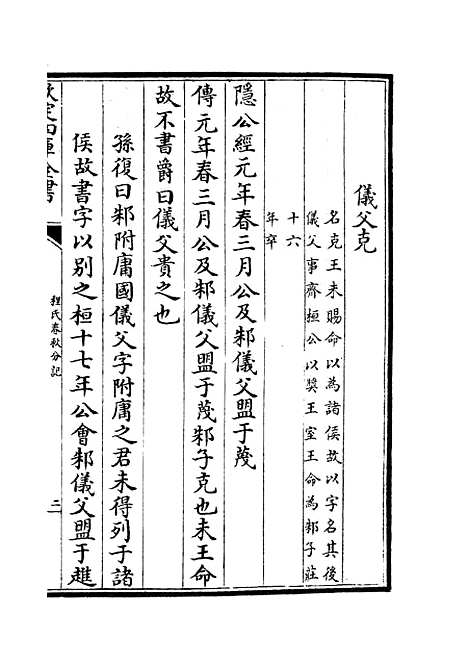 儀父克
名克王未賜命以為諸侯故以字名其後
儀父事齊桓公以奬王室王命為邾子莊
十六
年卒
隱公經元年春三月公及邾儀父盟于蔑
傳元年春三月公及邾儀父盟于蔑邾子克也未王命
故不書爵曰儀父貴之也
孫復曰邾附庸國儀父字附庸之君未得列于諸
侯故書字以别之桓十七年公會邾儀父盟于趡
欽定四庫全書
程氏春秋分記
三